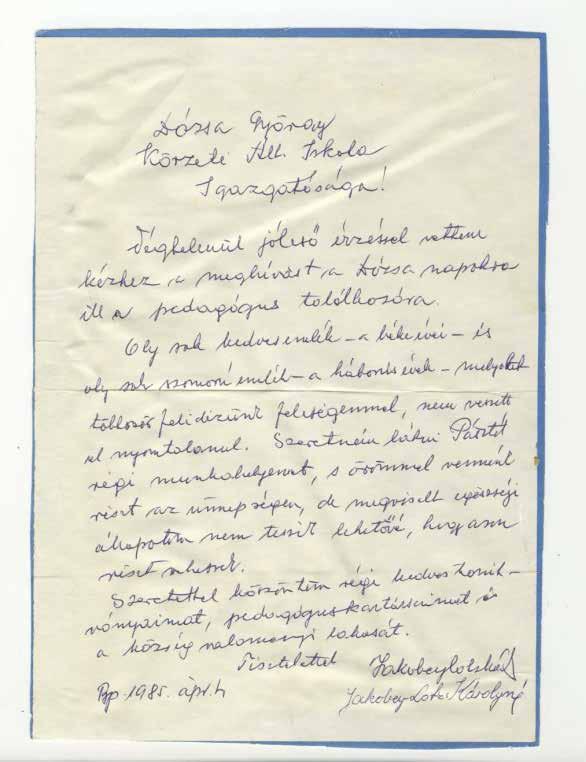 Dózsa György
Körzeti Ált. Iskola
Igazgatósága!
Végtelenül jóleső érzéssel vettem
kézhez a meghívást a Dózsa napokra
ill a pedagógus találkozóra.
Oly sok kedves emlék – a béke évei – és
oly sok szomorú emlék – a háborús évek – melyeket
többször felidézünk feleségemmel, nem veszett
el nyomtalanul. Szeretném látni
régi munkahelyemet, s örömmel vennék
részt az ünnepségen, de megviselt egészségi
állapotom nem teszi lehetővé, hogy azon
részt vehessek.
Szeretettel köszöntöm régi kedves tanít-
ványaimat, pedagógus kartársaimat és
a község valamennyi lakosát.
Tisztelettel Jakobey
Bp. 1985. ápr. 4 Jakobey Károlyné